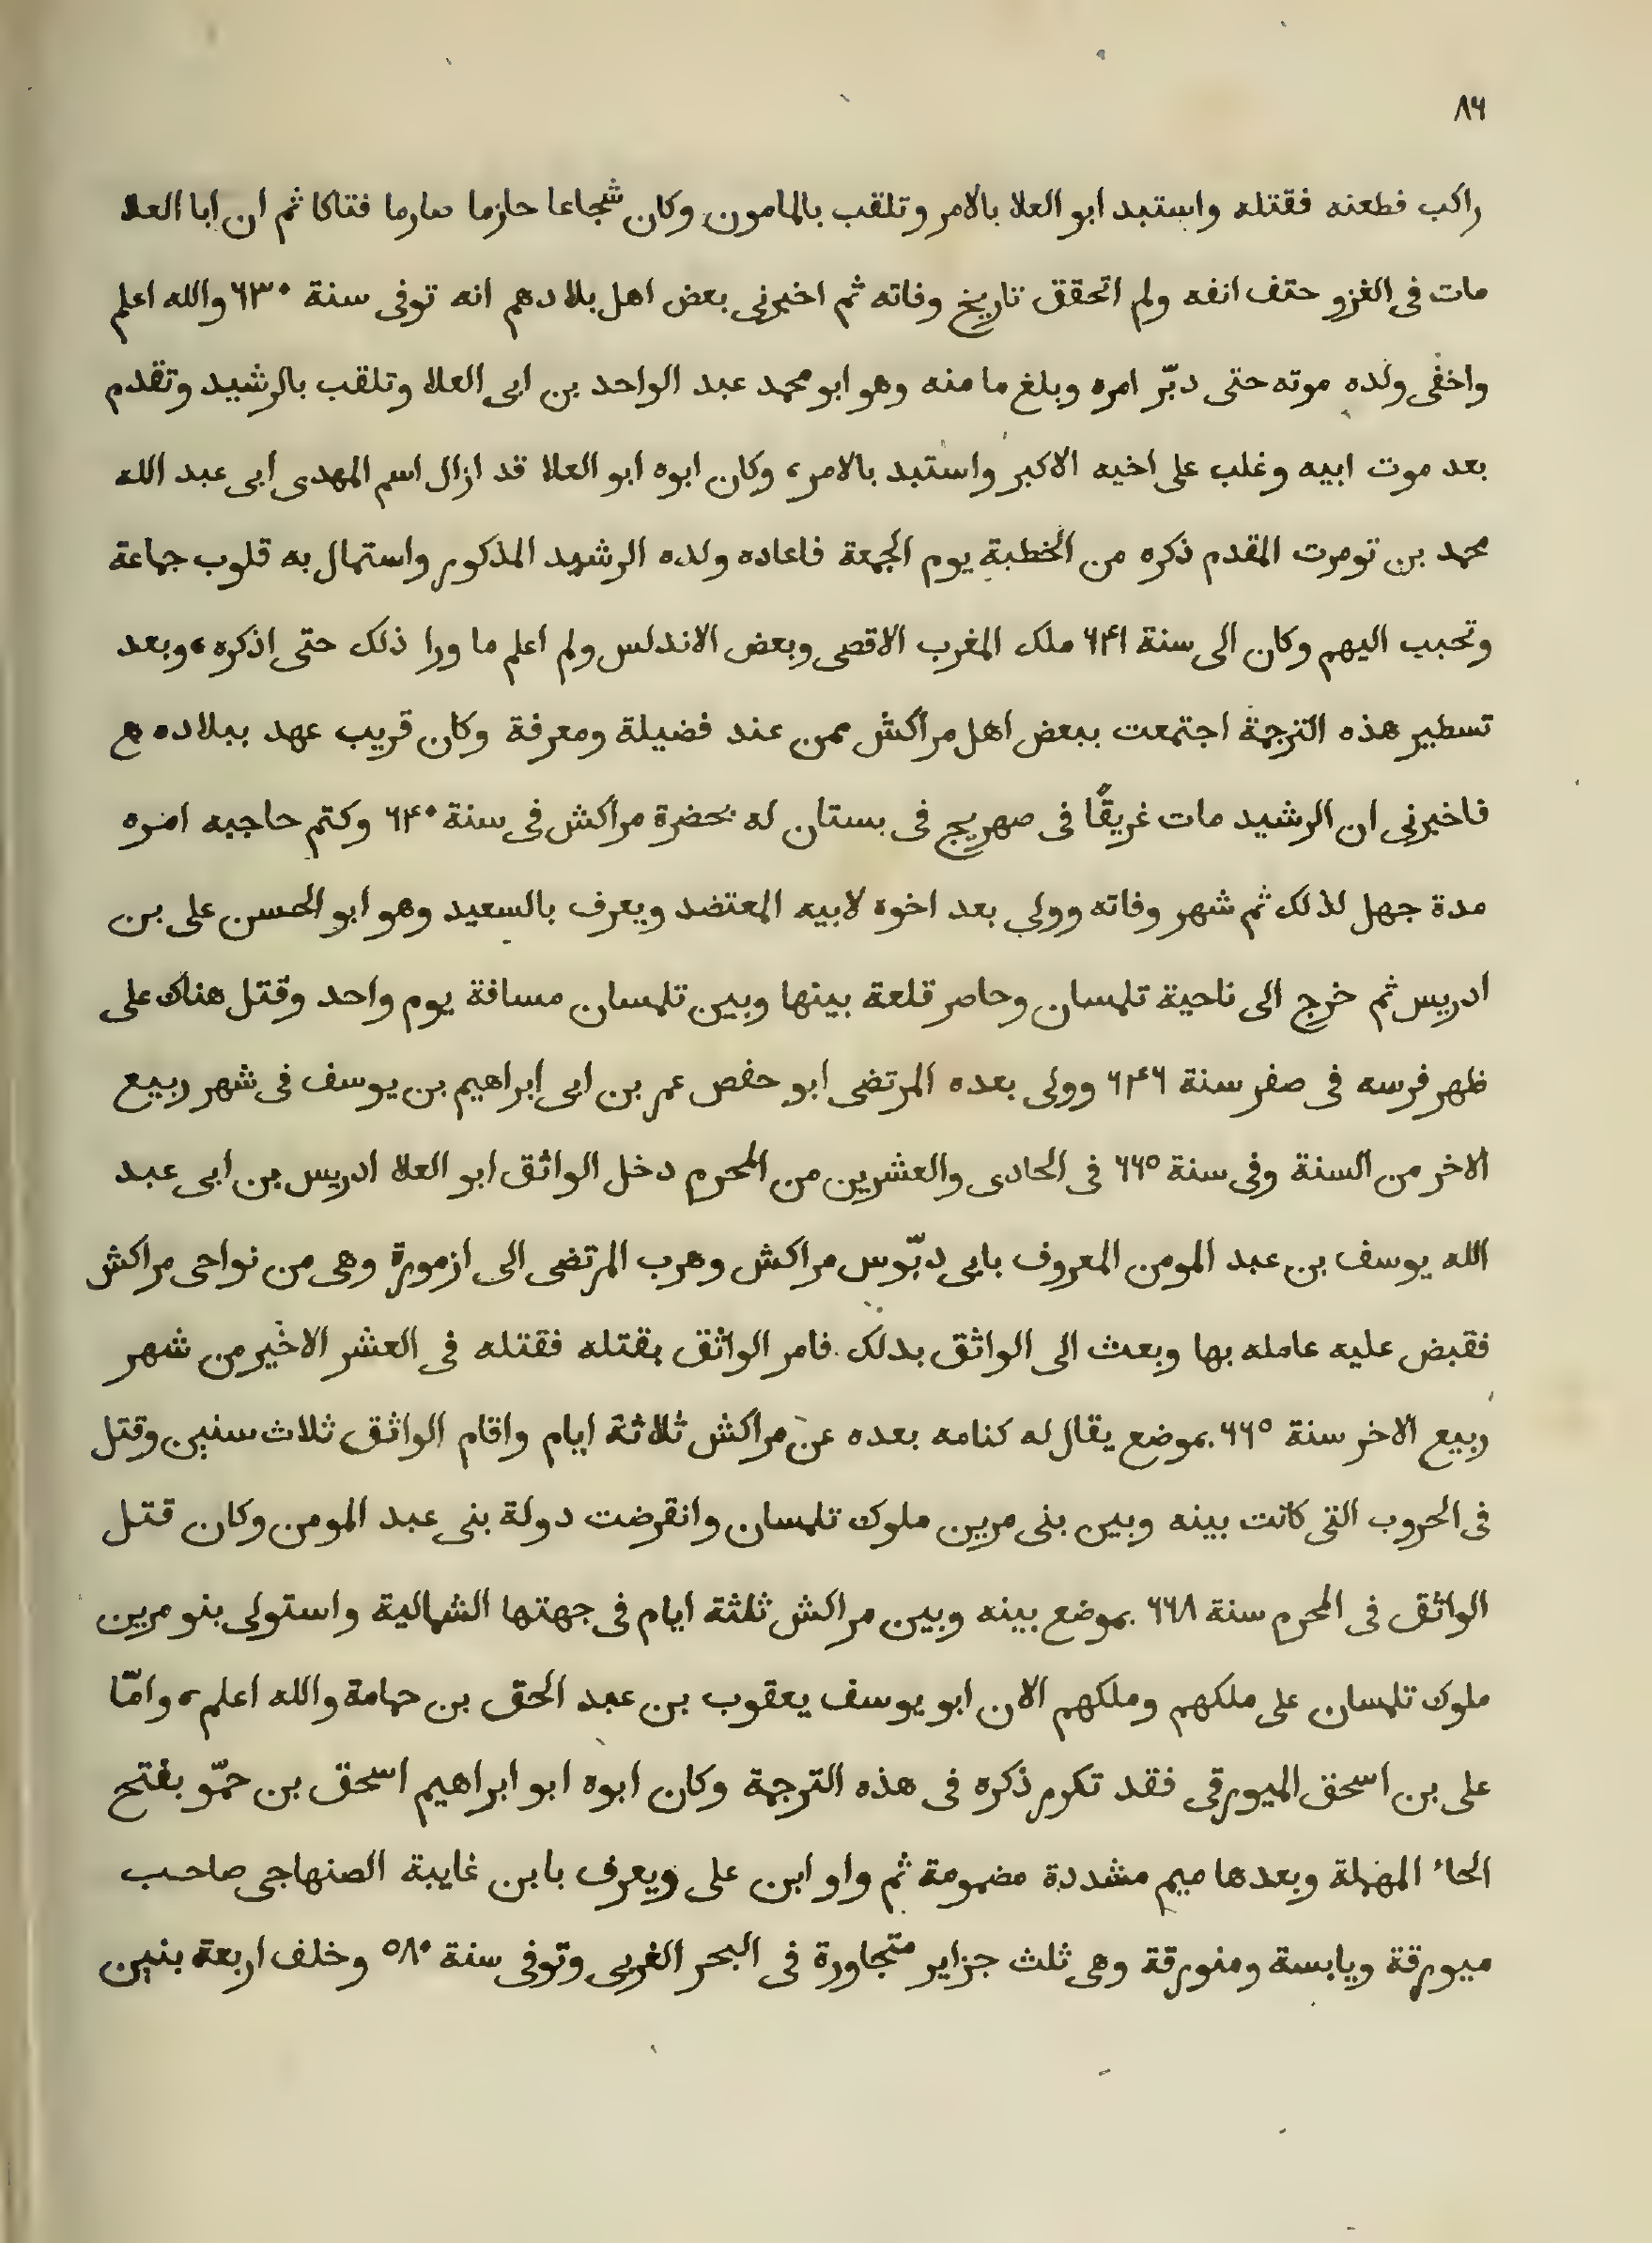 ٨٦
راكب فطعنه فقتله واستبد ابو العلا بالامر وتلقب بالمامون وكان شجاعا حازما صارما فتاكا ثم ان ابا العلا
مات فى الغزو حتف انفه ولم اتحقق تاريخ وفاته ثم اخبرنى بعض اهل بلادهم انه توفى سنة ٦٣٠ والله اعلم
واخفى ولده موته حتى دبّر امره وبلغ مامنه وهو ابو محمد عبد الواحد بن ابى العلا وتلقب بالرشيد وتقدم
بعد موت ابيه وغلب على اخيه الاكبر واستبد بالامر، وكان ابوه ابو العلا قد ازال اسم المهدى ابى عبد الله
محمد بن تومرت المقدم ذكره من الخطبة يوم الجمعة فاعاده ولده الرشيد المذكور واستمال به قلوب جماعة
وتحبب اليهم وكان الى سنة ٦٤١ ملك المغرب الاقصى وبعض الاندلس ولم اعلم ما ورا ذلك حتى اذكره، وبعد
تسطير هذه الترجمة اجتمعت ببعض اهل مراكش ممن عند فضيلة ومعرفة وكان قريب عهد ببلاده
فاخبرنى ان الرشيد مات غريقًا فى صهريج فى بستان له بحضرة مراكش فى سنة ٦٤٠ وكتم حاجبه امره
مدة جهل لذلك ثم شهر وفاته وولى بعد اخوه لابيه المعتضد ويعرف بالسعيد وهو ابو الحسن على بن
ادريس ثم خرج الى ناحية تلمسان وحاصر قلعة بينها وبين تلمسان مسافة يوم واحد وقتل هناك على
ظهر فرسه فى صفر سنة ٦٤٦ وولى بعده المرتضى ابو حفص عمر بن ابى ابراهيم بن يوسف فى شهر ربيع
الاخر من السنة وفى سنة ٦٦٥ فى الحادى والعشرين من المحرم دخل الواثق ابو العلا ادريس بن ابى عبد
الله يوسف بن عبد المومن المعروف بابى دبّوس مراكش وهرب المرتضى الى ازمورة وهى من نواحى مراكش
فقبض عليه عامله بها وبعث الى الواثق بدلك فامر الواثق بقتله فقتله فى العشر الاخير من شهر
ربيع الاخر سنة ٦٦٥ بموضع يقال له كنامه بعده عن مراكش ثلاثة ايام واقام الواثق ثلاث سنين وقتل
فى الحروب التى كانت بينه وبين بنى مرين ملوك تلمسان وانقرضت دولة بنى عبد المومن وكان قتل
الواثق فى المحرم سنة ٦٦٨ بموضع بينه وبين مراكش ثلثة ايام فى جهتها الشمالية واستولى بنو مرين
ملوك تلمسان على ملكهم وملكهم الان ابو يوسف يعقوب بن عبد الحق بن حمامة والله اعلم، وامّا
على بن اسحق الميورقى فقد تكرر ذكره فى هذه الترجمة وكان ابوه ابو ابراهيم اسحق بن حمّو بفتح
الحاء المهملة وبعدها ميم مشددة مضمومة ثم واو ابن على ويعرف بابن غايبة الصنهاجى صاحب
ميورقة ويابسة ومنورقة وهى ثلث جزاير متجاورة فى البحر الغربى وتوفى سنة ٥٨٠ وخلف اربعة بنين